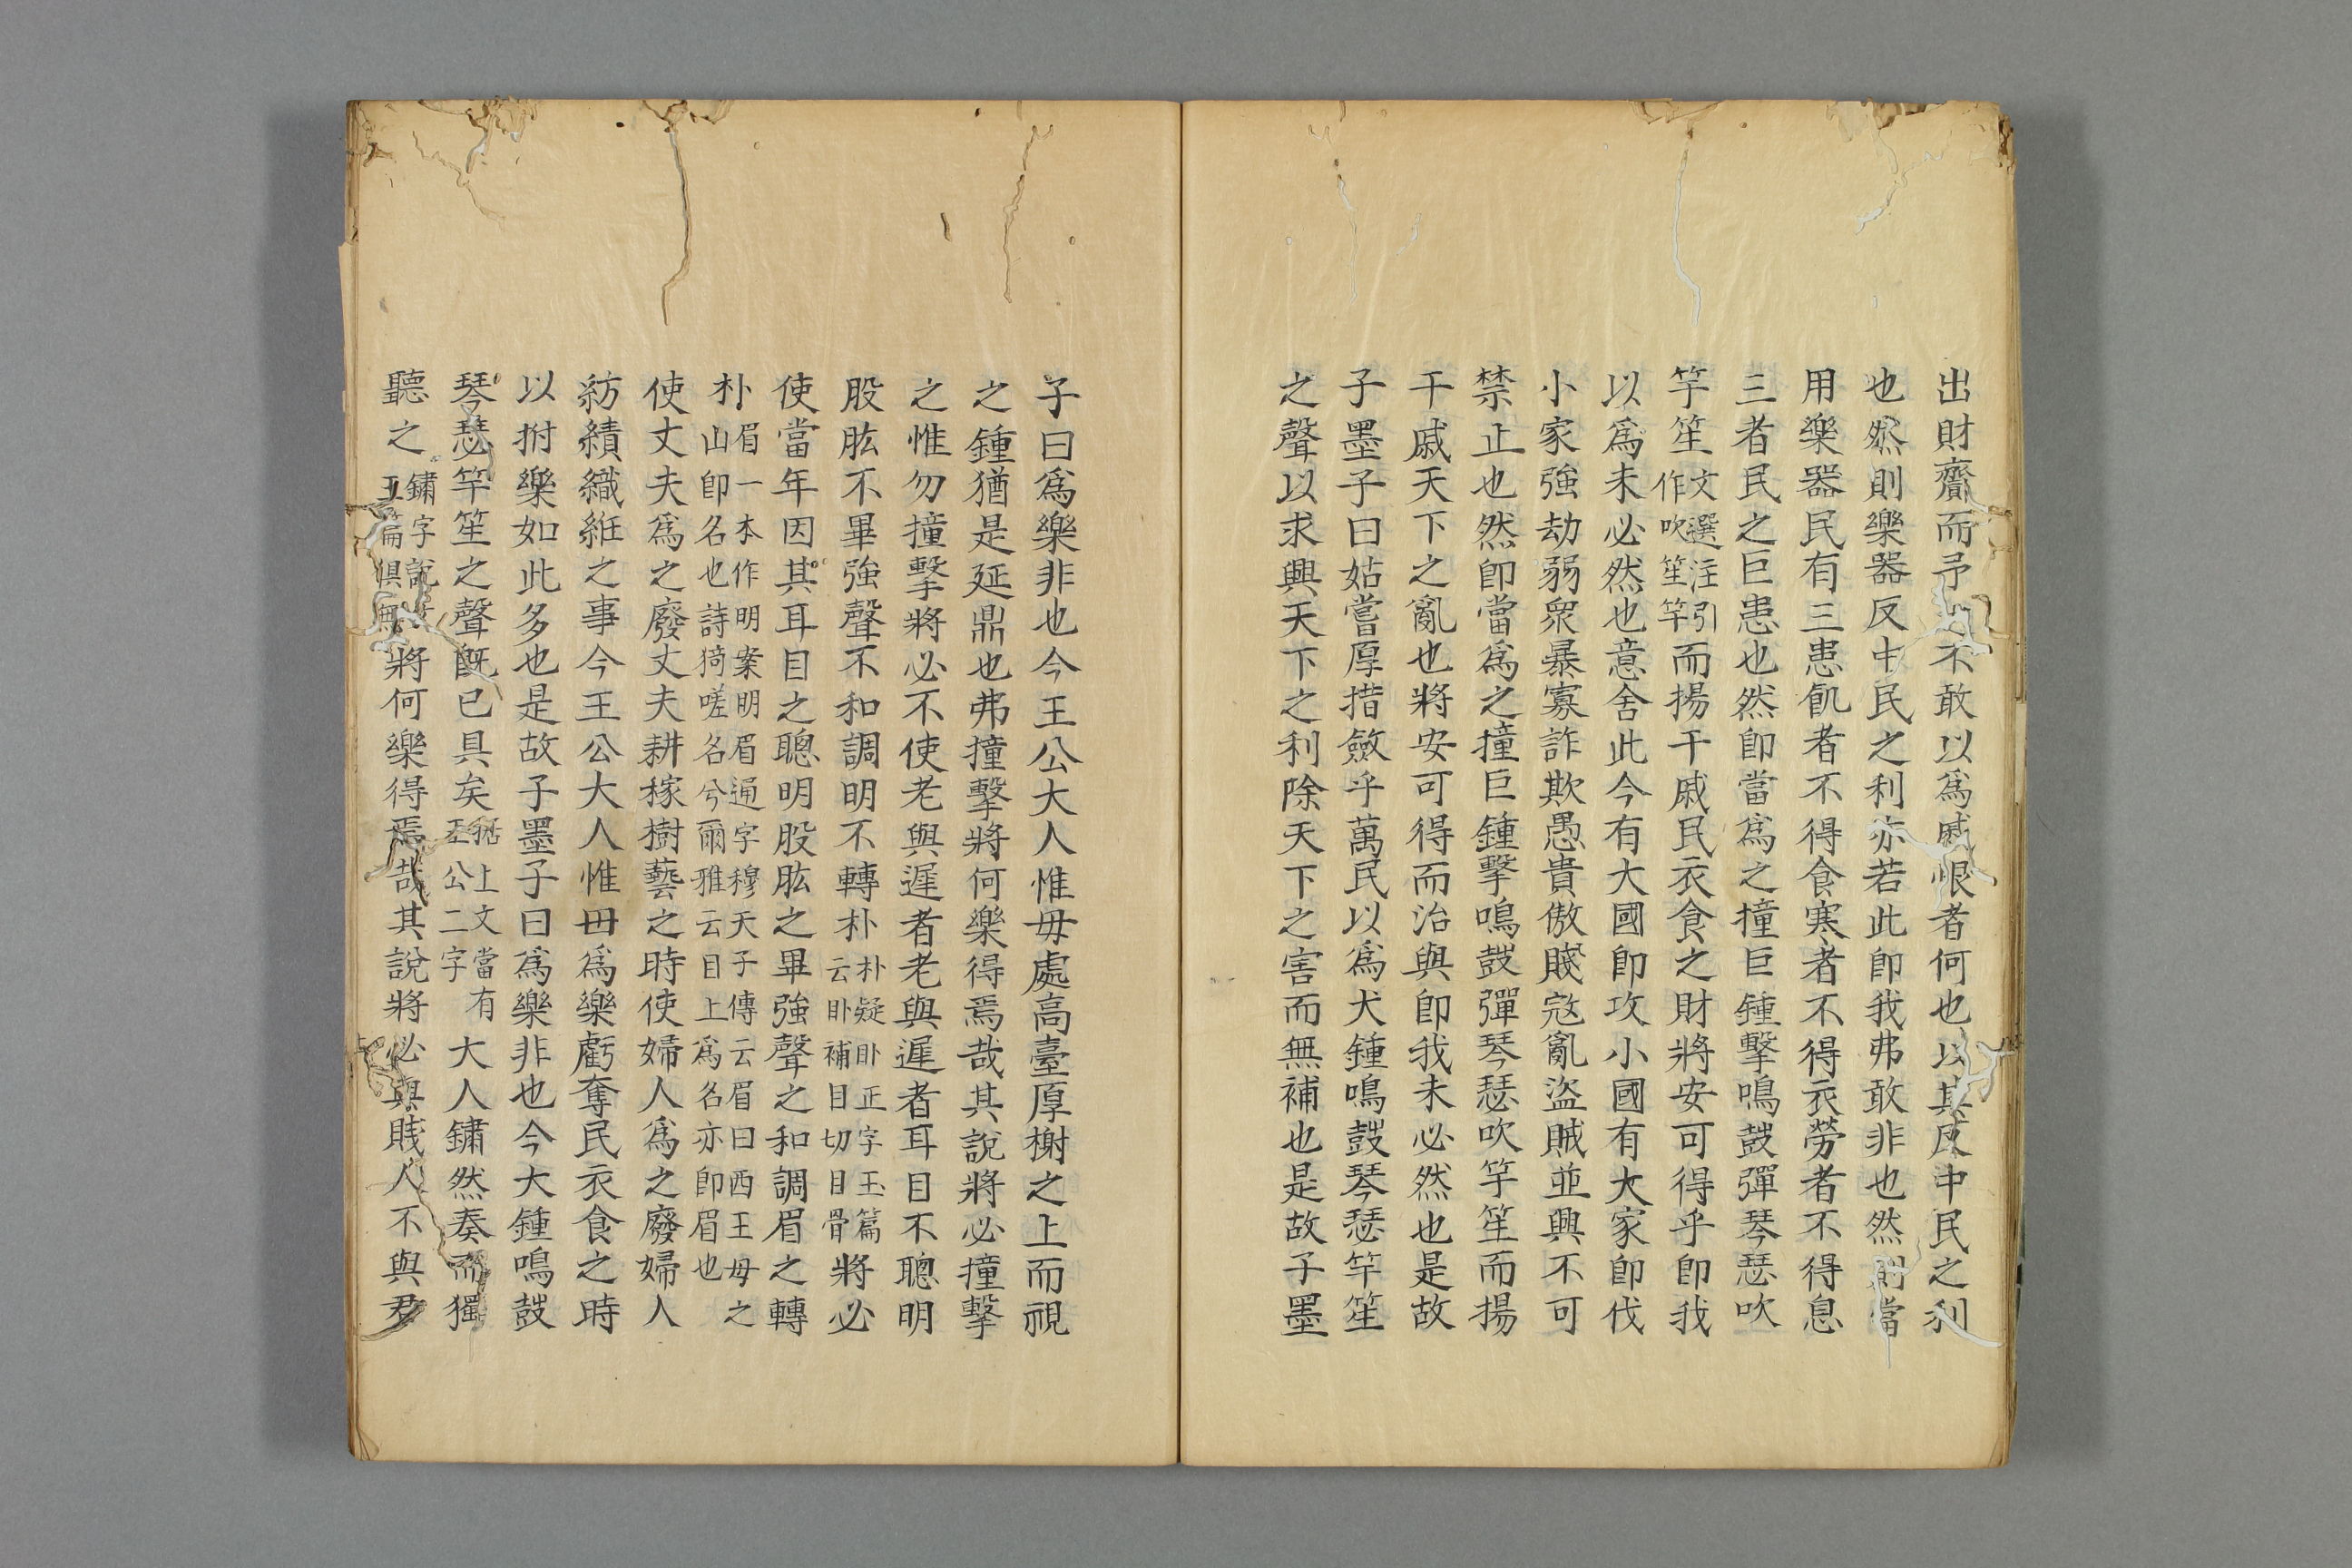 出財齎而予之不敢以爲慼恨者何也以其反中民之利
也然則樂器反中民之利亦若此卽我弗敢非也然則當
用樂器民有三患飢者不得食寒者不得衣勞者不得息
三者民之巨患也然卽當爲之撞巨鍾擊鳴鼓彈琴瑟吹
竽笙文選注引作吹笙竽而揚干戚民衣食之財將安可得乎卽我
以爲未必然也意舍此今有大國卽攻小國有大家卽伐
小家強劫弱衆暴寡詐欺愚貴傲賤寇亂盜賊並興不可
禁止也然卽當爲之撞巨鍾擊鳴鼓彈琴瑟吹竽笙而揚
干戚天下之亂也將安可得而治與卽我未必然也是故
子墨子曰姑嘗厚措斂乎萬民以爲大鍾鳴鼓琴瑟竽笙
之聲以求興天下之利除天下之害而無補也是故子墨
子曰爲樂非也今王公大人惟毋處高臺厚榭之上而視
之鍾猶是延鼎也弗撞擊將何樂得焉哉其說將必撞擊
之惟勿撞擊將必不使老與遲者老與遲者耳目不聰明
股肱不畢強聲不和調明不轉朴朴疑卧正字玉篇云卧補目切目骨將必
使當年因其耳目之聰明股肱之畢強聲之和調眉之轉
朴眉一本作明案明眉通字穆天子傳云眉曰西王母之山卽名也詩猗嗟名兮爾雅云目上爲名亦卽眉也
使丈夫爲之廢丈夫耕稼樹藝之時使婦人爲之廢婦人
紡績織紝之事今王公大人惟毋爲樂虧奪民衣食之時
以拊樂如此多也是故子墨子曰爲樂非也今大鍾鳴鼓
琴瑟竽笙之聲旣已具矣據上文當有王公二字大人鏽然奏而獨
聽之鏽字說文玉篇俱無將何樂得焉哉其說將必與賤人不與君